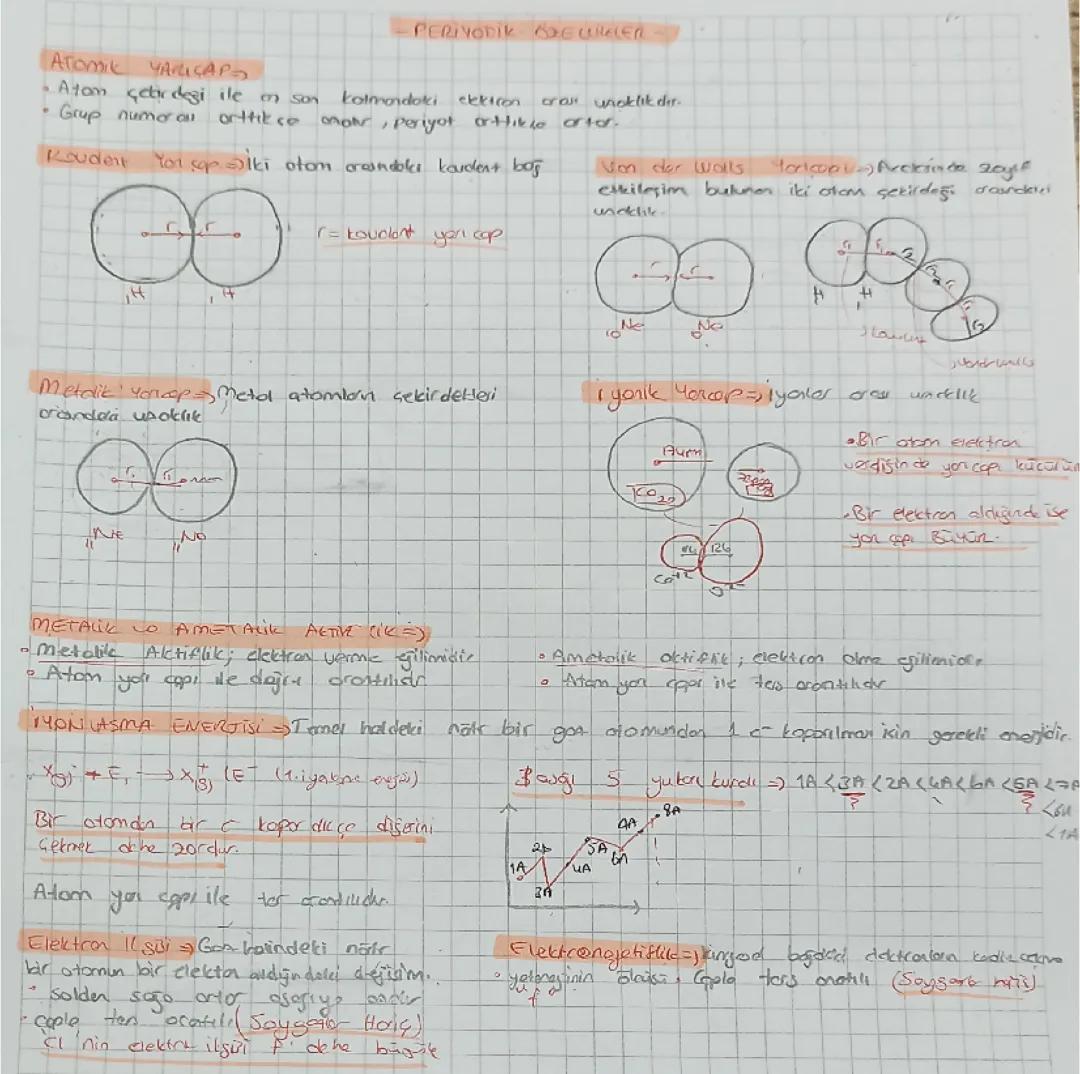 - PERİYODİK ÖZELLİKLER -
ATOMİK YARIÇAP ⇒
• Atom çekirdeği ile en son katmandaki elektron arası uzaklıktır.
• Grup numarası arttıkça azalır, periyot arttıkça artar.
Kovalent Yarıçap ⇒ İki atom arasındaki kovalent bağ
r r
r = kovalent yarıçap
₁H ₁H
Van der Walls Yarıçapı ⇒ Aralarında zayıf
etkileşim bulunan iki atom çekirdeği arasındaki
uzaklık.
r r
₁₀Ne ₁₀Ne
H H
Metalik Yarıçap ⇒ Metal atomların çekirdekleri
arasındaki uzaklık
İyonik Yarıçap ⇒ İyonlar arası uzaklık
• Bir atom elektron
verdiğinde yarıçapı küçülür
• Bir elektron aldığında ise
yarıçapı Büyür.
Ca⁺² O²⁻
METALİK ve AMETALİK AKTİFLİK ⇒
• Metalik Aktiflik; elektron verme eğilimidir
• Atom yarıçapı ile doğru orantılıdır
• Ametalik aktiflik; elektron alma eğilimidir
• Atom yarıçapı ile ters orantılıdır
İYONLAŞMA ENERJİSİ ⇒ Temel haldeki nötr bir gaz atomundan 1 e⁻ koparılması için gerekli enerjidir.
X(g) + E₁ → X⁺(g) + e⁻
Bir atomdan bir e⁻ kopardıkça diğerini
çekmek daha zordur.
Atom yarıçapı ile ters orantılıdır.
3 aşağı 5 yukarı kuralı ⇒ 1A < 3A < 2A < 4A < 6A < 5A < 7A
8A
4A
2A 5A
1A 6A
4A
3A
Elektron İlgisi ⇒ Gaz halindeki nötr
bir atomun bir elektron aldığındaki değişim.
• Soldan sağa artar aşağıya azalır
• Çapla ters orantılı (Soygazlar Hariç)
Cl 'nin elektron ilgisi F' daha büyük
Elektronegatiflik ⇒ kimyasal bağdaki elektronların kendine çekme
• yeteneğinin ölçüsü, Çapla ters orantılı (Soygazlar hariç)